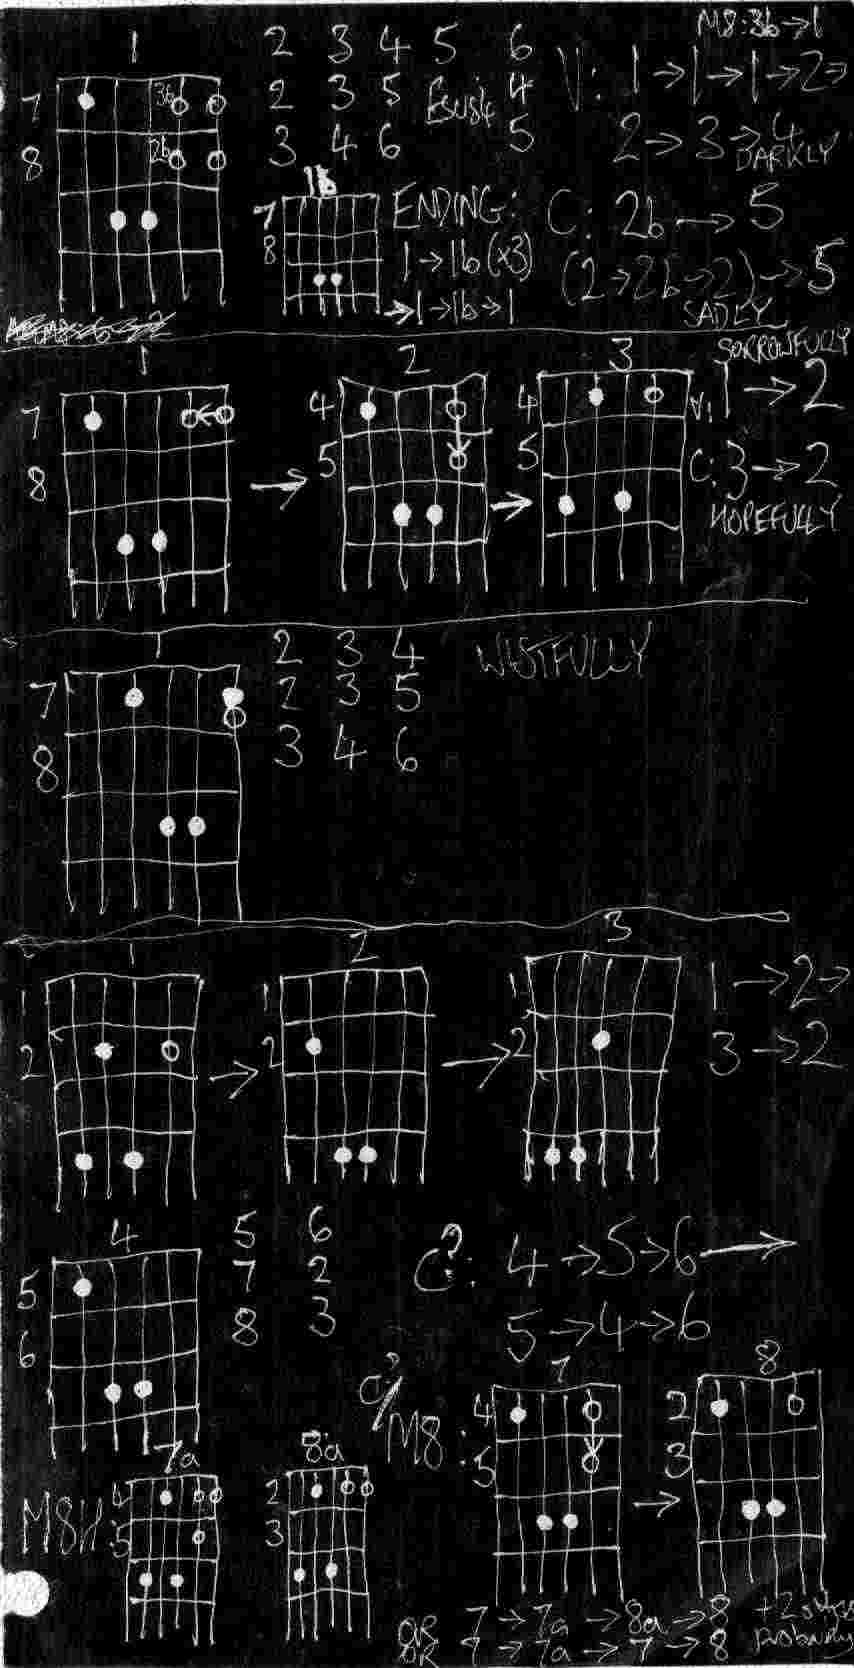 1 2 3 4 5 6 M8: 3b → 1
7 3b 2 3 5 Esus4 4 V: 1 → 1 → 1 → 2 →
8 2b 3 4 6 5 2 → 3 → 4
DARKLY
1b
7 ENDING: C: 2b → 5
8 1 → 1b (x3) (2 → 2b → 2) → 5
→ 1 → 1b → 1 SADLY
SORROWFULLY
1 2 3
7 4 4 V: 1 → 2
8 → 5 → 5 C: 3 → 2
HOPEFULLY
1 2 3 4 WISTFULLY
7 2 3 5
8 3 4 6
1 2 3
1 1 1 1 → 2 →
2 → 2 → 2 3 → 2
4 5 6
5 7 2 C?: 4 → 5 → 6 →
6 8 3 5 → 4 → 6
7 8
C?/M8: 4 2
5 → 3
7a 8a
M8H: 4 2
5 3
OR 7 → 7a → 8a → 8 +2
OR 7 → 7a → 7 → 8 probably